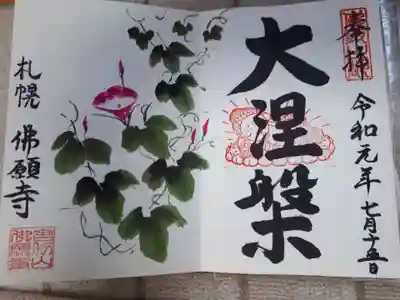 奉拝
大涅槃
令和元年七月十五日
札幌 佛願寺